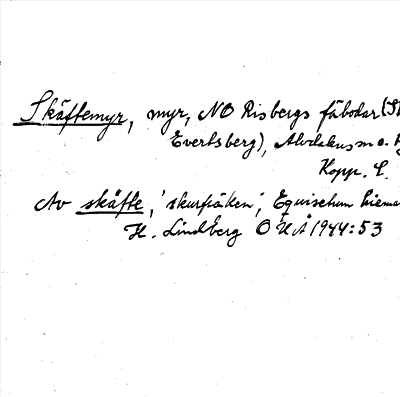 Skäftemyr, myr, NO Risbergs fäbodar (St
Evertsberg), Älvdalens m o.
Kopp. L.
Av skäfte, 'skurfräken', Equisetum hiema
H. Lindberg OUÅ 1944:53